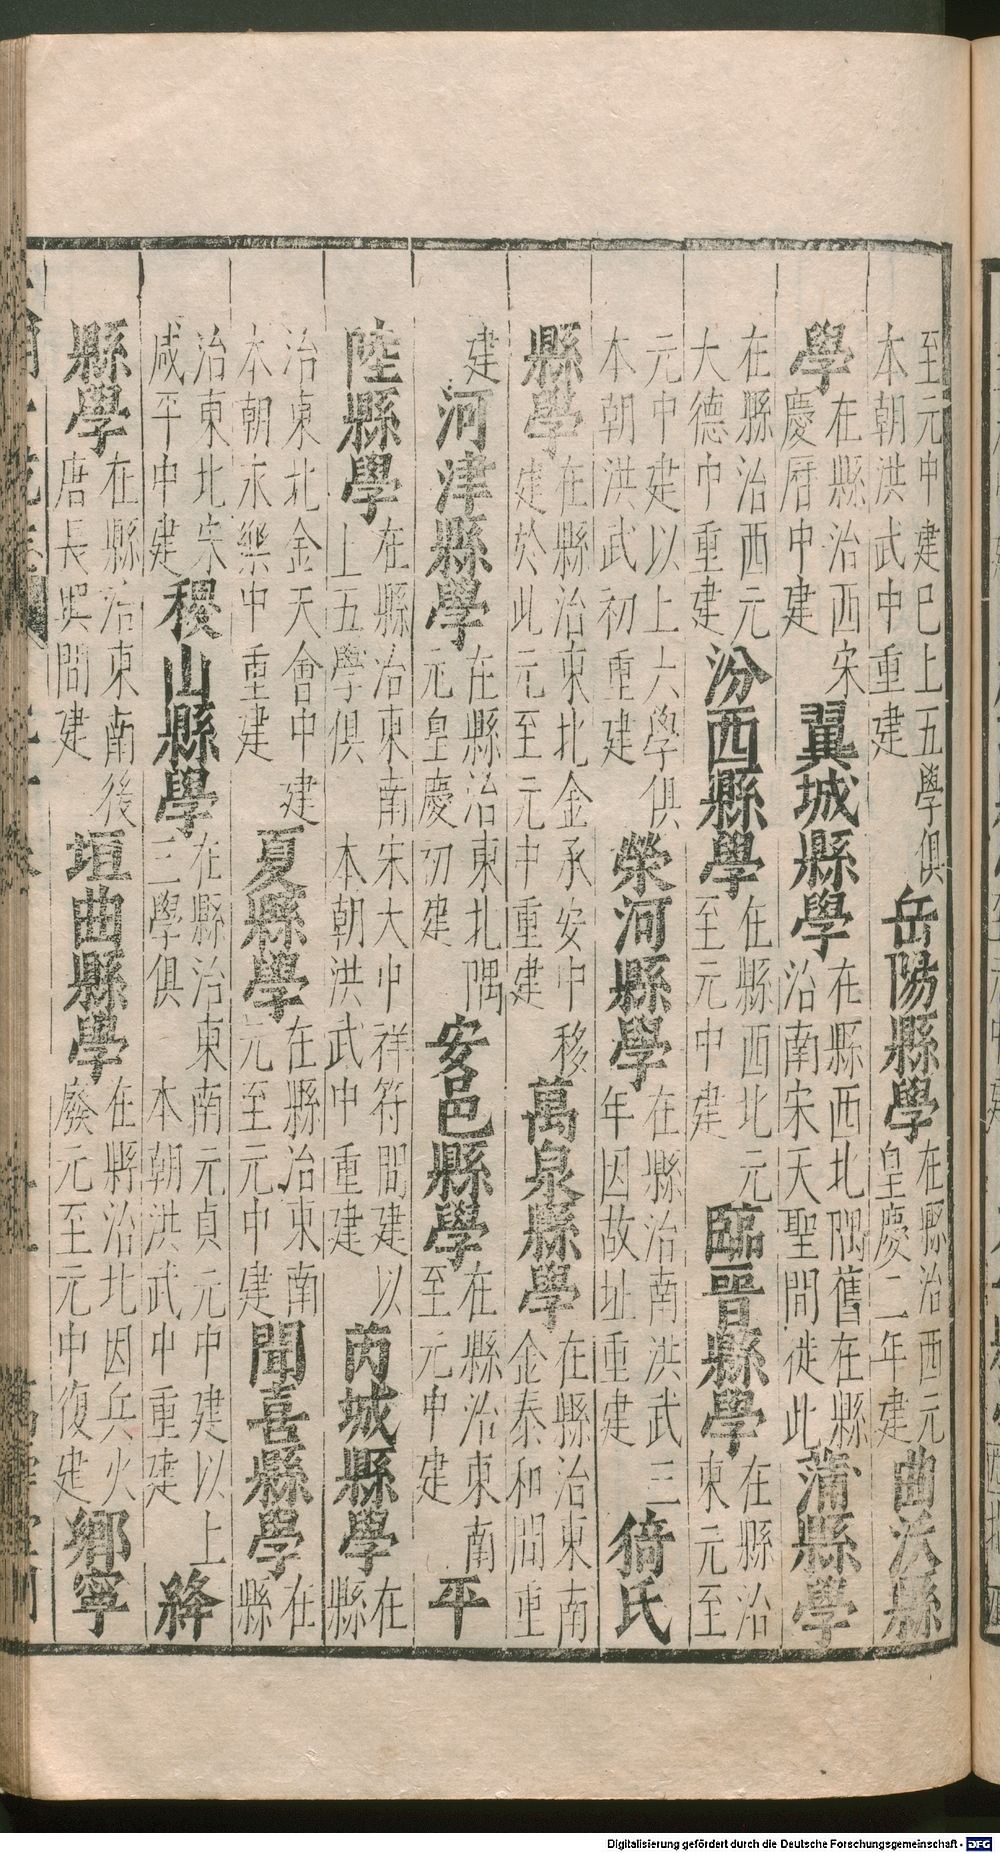 至元中建已上五學俱本朝洪武中重建岳陽縣學在縣治西元皇慶二年建曲沃縣
學在縣治西宋慶曆中建翼城縣學在縣西北隅舊在縣治南宋天聖間徙此蒲縣學
在縣治西元大德中重建汾西縣學在縣西北元至元中建臨晉縣學在縣治東元至
元中建以上六學俱本朝洪武初重建榮河縣學在縣治南洪武三年因故址重建猗氏
縣學在縣治東北金承安中移建於此元至元中重建萬泉縣學在縣治東南金泰和間重
建河津縣學在縣治東北隅元皇慶初建安邑縣學在縣治東南至元中建平
陸縣學在縣治東南宋大中祥符間建以上五學俱本朝洪武中重建芮城縣學在縣
治東北金天會中建本朝永樂中重建夏縣學在縣治東南元至元中建聞喜縣學在縣
治東北宋咸平中建稷山縣學在縣治東南元貞元中建以上三學俱本朝洪武中重建絳
縣學在縣治東南後唐長興間建垣曲縣學在縣治北因兵火廢元至元中復建鄉寧
Digitalisierung gefördert durch die Deutsche Forschungsgemeinschaft - DFG